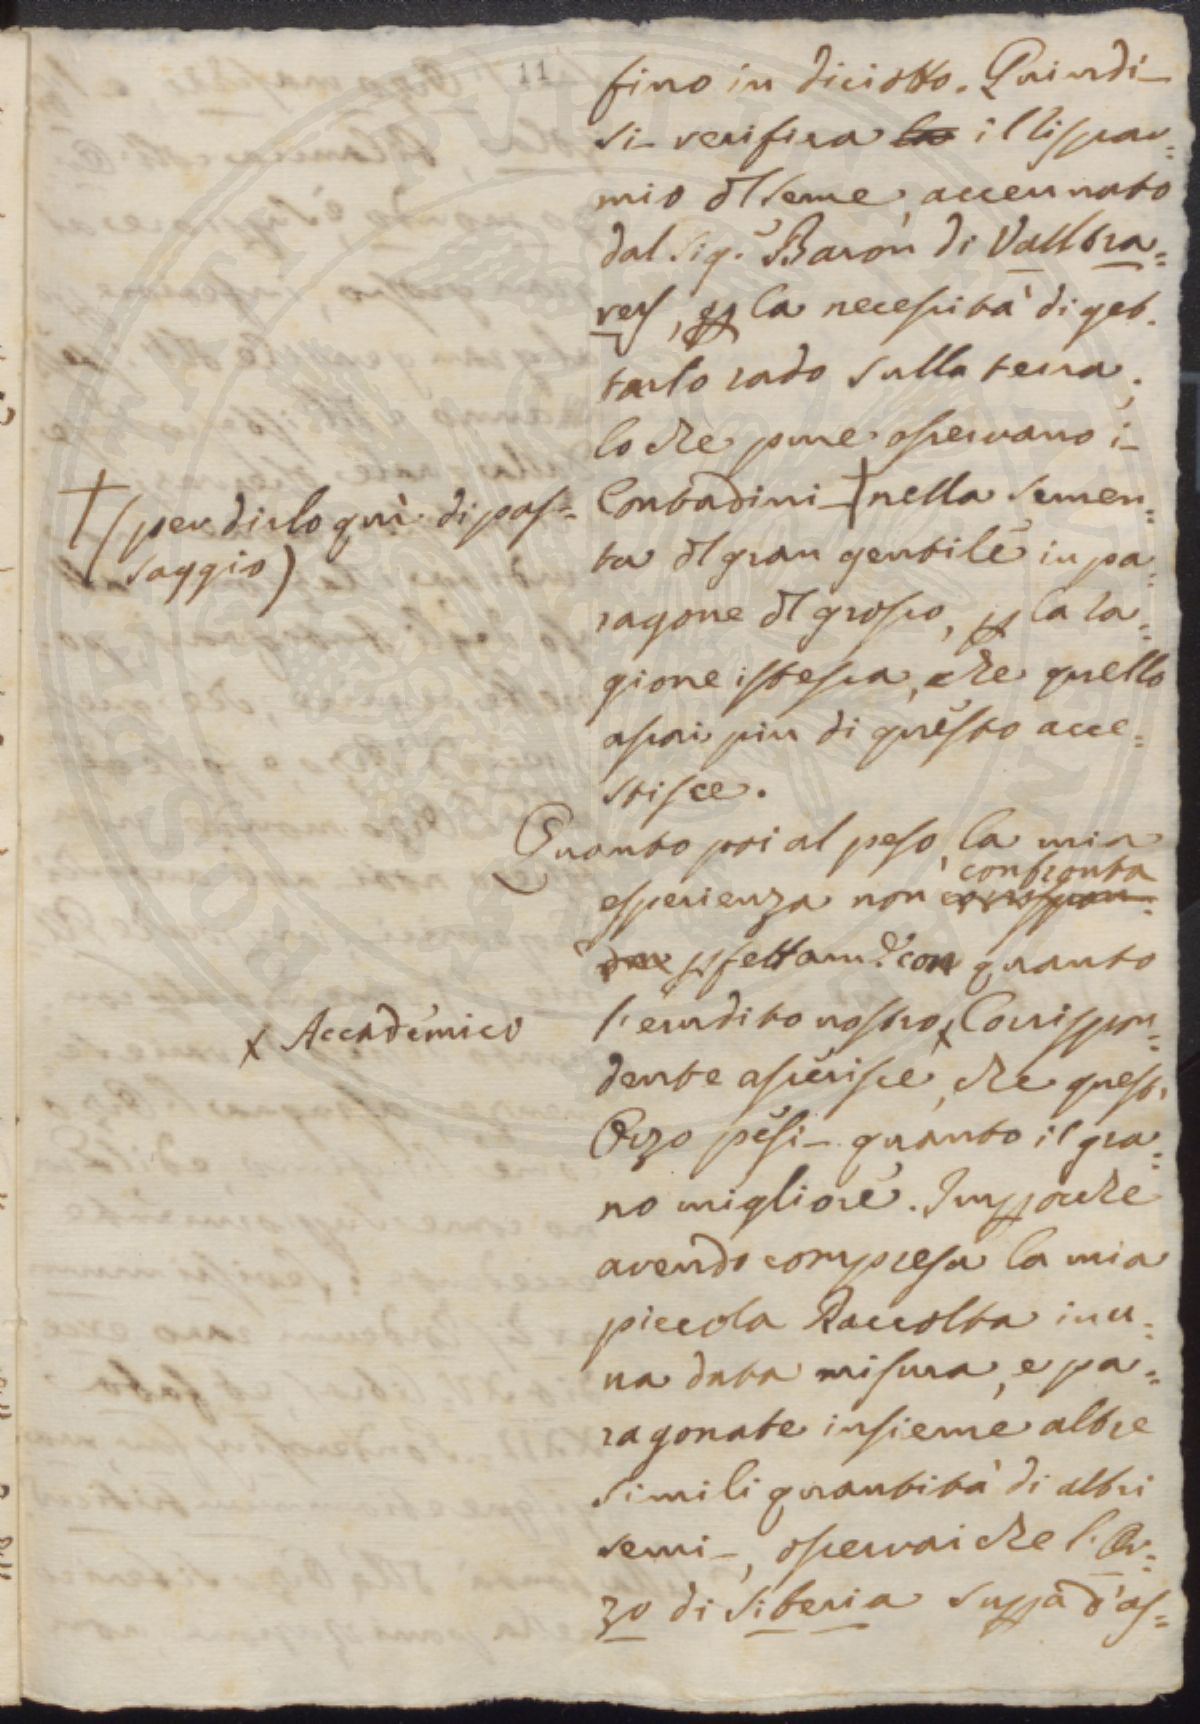 11
fino in diciotto. Quindi
si verifica la il lispar=
mio dl seme, accennato
dal Sig.r Baron di Vallbra=
vers, p la necessità di get=
tarlo rado sulla terra;
lo che pure osservano i
Contadini † nella semen=
† (per dirlo quì di pas=
saggio)
ta dl gran gentile in pa=
ragone dl grosso, p la ra=
gione istessa, che quello
assai più di questo acce=
stisce.
Quanto poi al peso, la mia
confronta
esperienza non corrispon=
de pfettam.e con quanto
l'erudito nostro x Corrispon=
x Accademico
dente asserisce, che quest'
Orzo pesi quanto il gra=
no migliore. Impoche
avendo compresa la mia
piccola Raccolta in u=
na data misura, e pa=
ragonate insieme altre
simili quantità di altri
semi, osservai che l'Or=
zo di Siberia supa d'as=